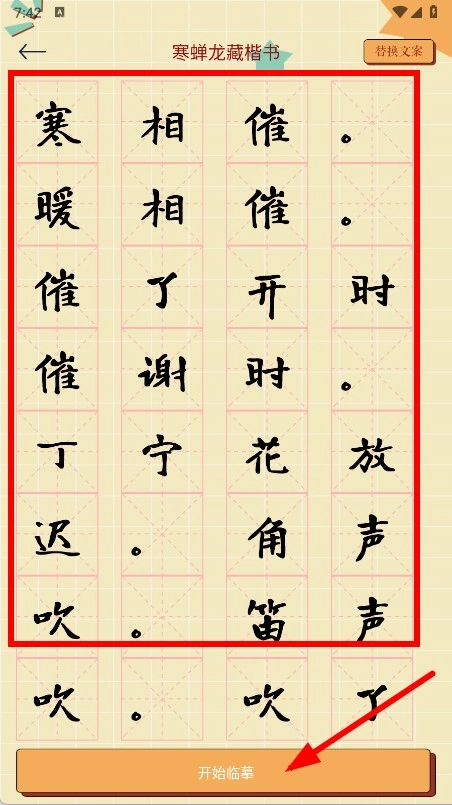 7:42 A
寒蝉龙藏楷书
替换文案
寒相催。
暖相催。
催了开时
催谢时。
丁宁花放
迟。角声
吹。笛声
吹。吹了
开始临摹